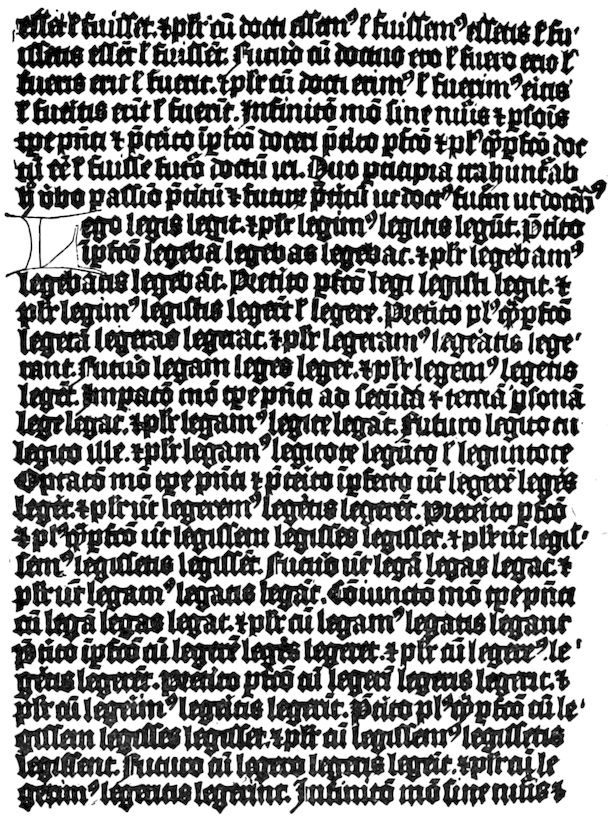 esset ł fuisset. ⁊ płr cū docti essemꝰ ł fuissemꝰ essetis ł fu⸗
issetis essēt ł fuissēt. Futuro cū doctus ero ł fuero erio ł
fueris erit ł fuerit. ⁊ płr cū docti erimꝰ ł fuerimꝰ eritis
ł fueritis erūt ł fuerīt. Infinitō mō sine nūis ⁊ psōis
tꝑe pn̄ti ⁊ p̄terito īpfcō doceri p̄terito pfcō ⁊ plꝰqꝫpfcō doc
tū eē ł fuisse futō doctū iri. Duo pticipia trahunt̄ ab
h̄ v̄bo passiō p̄teritū ⁊ futurū p̄teritū ut doctꝰ futūm ut docēdꝰ
Lego legis legit. ⁊ płr legimꝰ legitis legūt. P̄terito
īpfcō legebā legebas legebat. ⁊ płr legebamꝰ
legebatis legebāt. Pretito pfcō legi legisti legit. ⁊
płr legimꝰ legistis legerūt ł legere. Pretito plꝰqꝫpfcō
legerā legeras legerat. ⁊ płr legeramꝰ legeratis lege⸗
rant. Futuro legam leges leget. ⁊ płr legemꝰ legetis
legēt. Impatō mō tꝑe pn̄ti ad secūdā ⁊ terciā psonā
lege legat. ⁊ płr legamꝰ legite legāt. Futuro legito tu
legito ille. ⁊ płr legamꝰ legitote legūto ł leguntote
Optatō mō tꝑe pn̄ti ⁊ p̄terito īpfecto ut̄ legerē legeres
legēt. ⁊ płr ut̄ legeremꝰ legeretis legerēt. Preterito pfcō
⁊ plꝰqꝫpfcō ut̄ legissem legisses legisset. ⁊ płr ut̄ legis⸗
semꝰ legissetis legissēt. Futuro ut̄ legā legas legat. ⁊
płr ut̄ legamꝰ legatis legāt. Cōiunctō mō tꝑe pn̄ti
cū legā legas legat. ⁊ płr cū legamꝰ legatis legant
P̄terito īpfcō cū legerē legeres legeret. ⁊ płr cū legeremꝰ le⸗
geretis legerēt. Pretito pfcō cū legeri legeris legerit. ⁊
płr cū legerimꝰ legeritis legerīt. P̄terito plꝰqꝫpfcō cū le⸗
gissem legisses legisset. ⁊ płr cū legissemꝰ legissetis
legissent. Futuro cū legero legeris legerit. ⁊ płr cū le
gerimꝰ legeritis legerint. Infinitō mō sine nūis ⁊